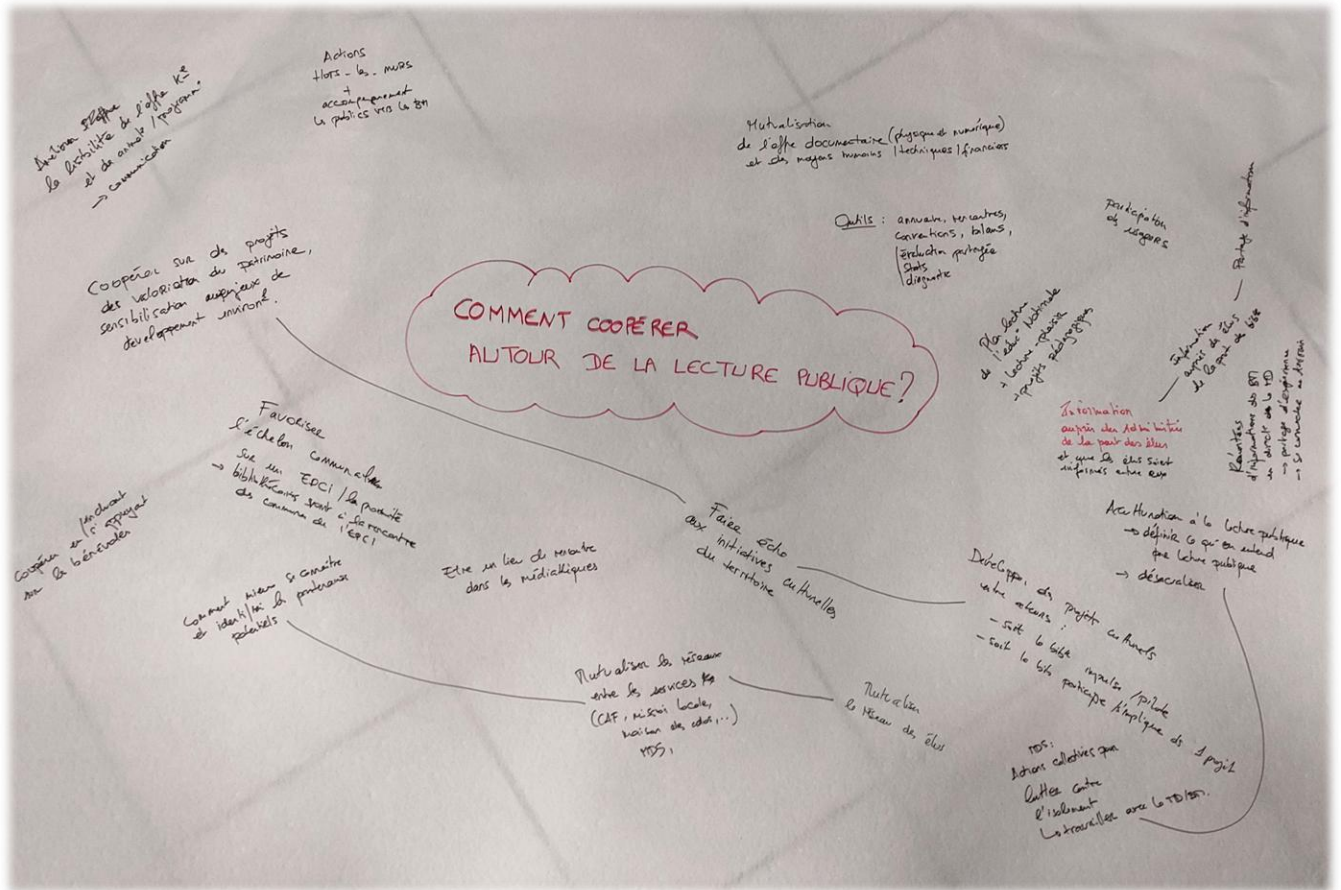 la lisibilité de l'offre K^elle
et de animat° / programm°
→ communication
Actions
Hors-les-murs
+
accompagnement
les publics vers les BM
Mutualisation
de l'offre documentaire (physique et numérique)
et des moyens humains / techniques / financiers
Outils : annuaire, rencontres,
conventions, bilans,
évaluation partagée
Stats
diagnostic
participation
des usagers
Partage d'information
Information
auprès des élus
de la part de bib
Coopérer sur des projets
des valorisation du patrimoine,
sensibilisation aux enjeux de
développement environt.
COMMENT COOPÉRER
AUTOUR DE LA LECTURE PUBLIQUE ?
Plan lecture
de l'educ° Nationale
+ lecture-plaisir
+ projets pédagogiques
Information
auprès des administrés
de la part des élus
et que les élus soient
informés entre eux
Remontées
d'informations des BM
en direct de la MD
→ partage d'expérience
→ se connaître
Favoriser
l'échelon communal
sur un EPCI / la proximité
→ bibliothécaires sont à la rencontre
des communes de l'EPCI
Coopérer en s'appuyant
sur les bénévoles
Comment mieux se connaître
et identifier les partenaires
potentiels
Etre un lieu de rencontre
dans les médiathèques
Faire écho
aux initiatives culturelles
du territoire
Acculturation à la lecture publique
→ définir ce qu'on entend
par lecture publique
→ désacraliser
Développer des projets culturels
entre acteurs :
- soit la bib impulse / pilote
- soit la bib participe / s'implique ds 1 projet
Mutualiser les réseaux
entre les services
(CAF, mission locale,
maison des ados, ...)
MDS,
Mutualiser
le réseau des élus
MDS :
Actions collectives pour
lutter contre
l'isolement
↳ travailler avec la MD/BM.